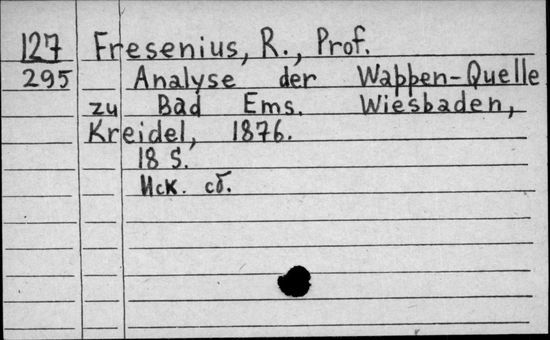 127 Fresenius, R., Prof.
295 Analyse der Wappen-Quelle
zu Bad Ems. Wiesbaden,
Kreidel, 1876.
18 S.
Иск. сб.